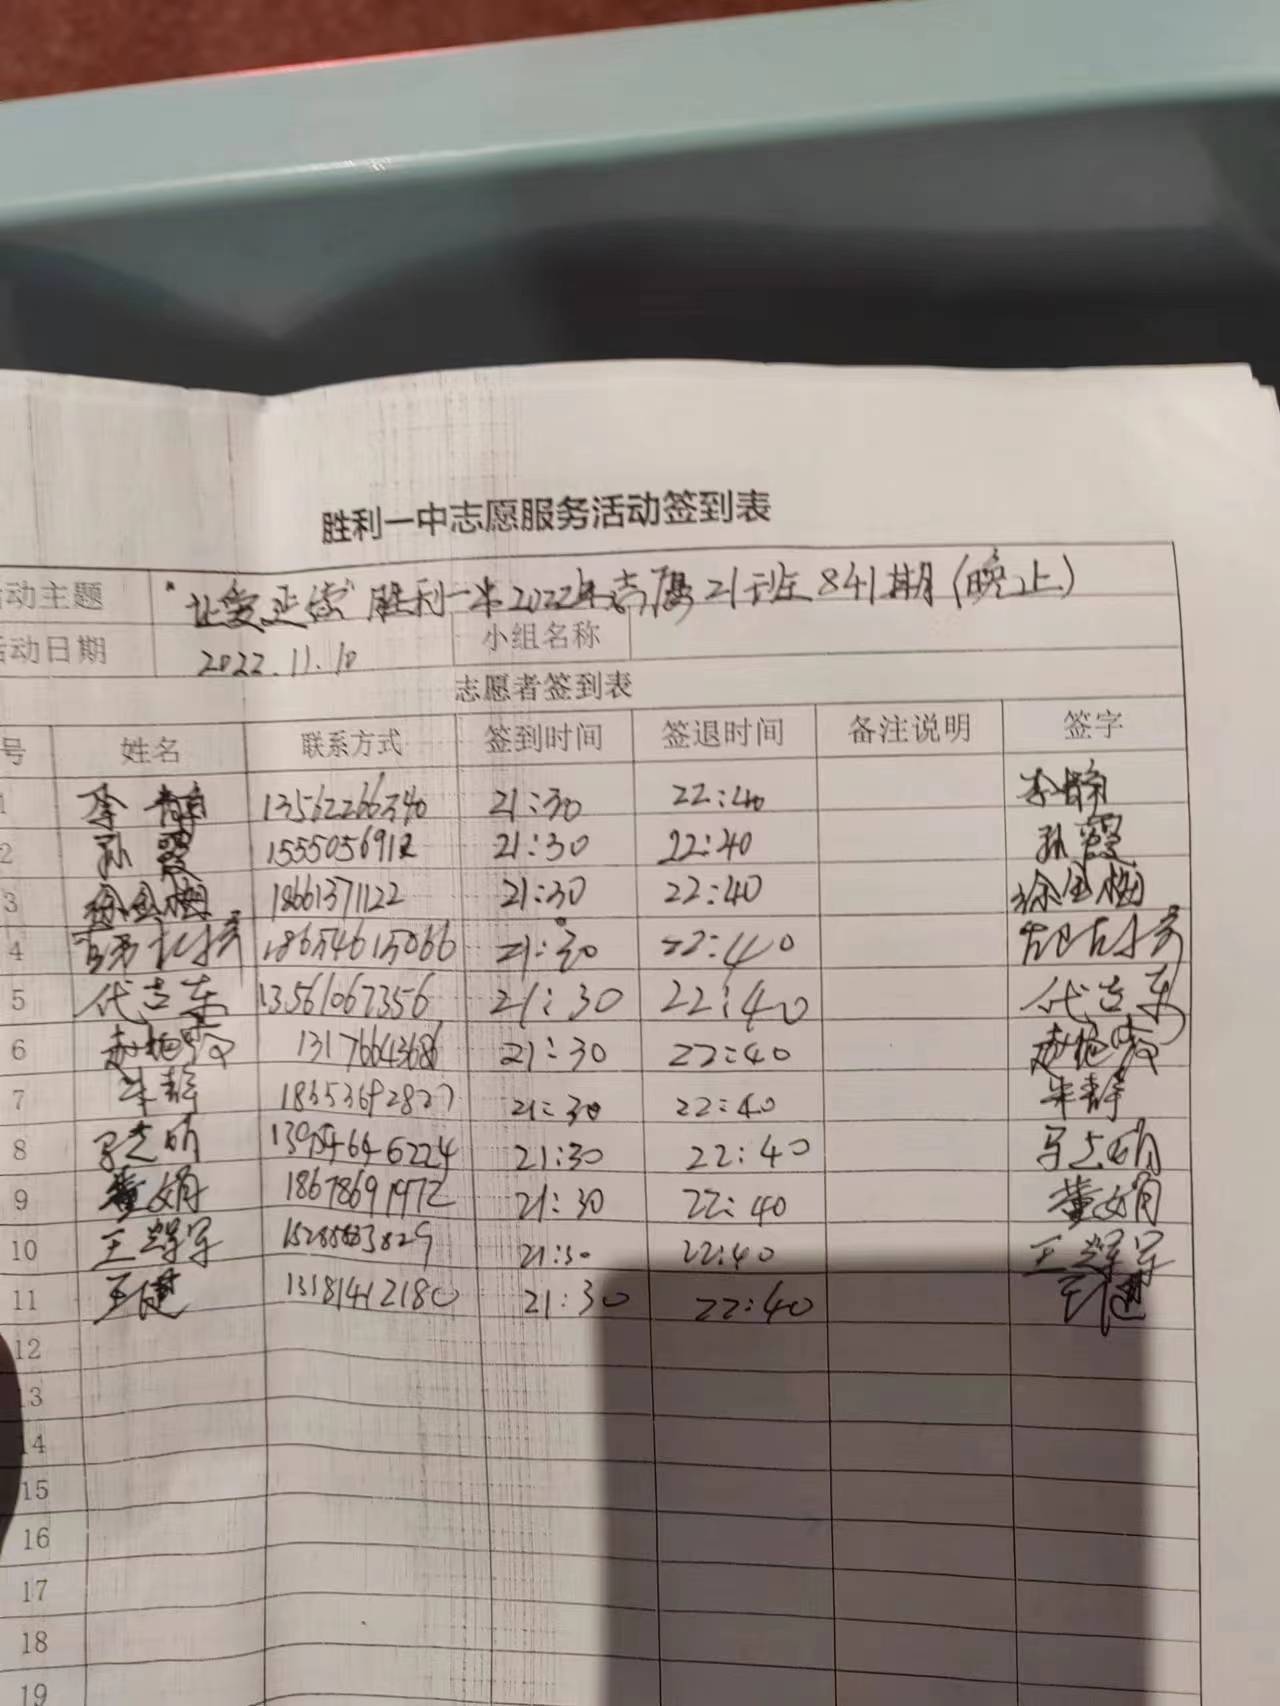 胜利一中志愿服务活动签到表
动主题 "让爱延续"胜利一中2022年高 21班841期(晚上)
动日期 2022.11.10 小组名称
志愿者签到表
号 姓名 联系方式 签到时间 签退时间 备注说明 签字
1 李静 13562266340 21:30 22:40 李静
2 孙霞 1555056912 21:30 22:40 孙霞
3 徐金梅 18661371122 21:30 22:40 徐金梅
4 18654615066 21:30 22:40
5 代吉东 13561067356 21:30 22:40 代吉东
6 赵艳霞 13176643686 21:30 22:40 赵艳霞
7 朱静 18353692827 21:30 22:40 朱静
8 马志明 13905466224 21:30 22:40
9 董娟 18678691972 21:30 22:40 董娟
10 王 军 21:30 22:40 王 军
11 王健 13181412180 21:30 22:40 王健
12
13
14
15
16
17
18
19